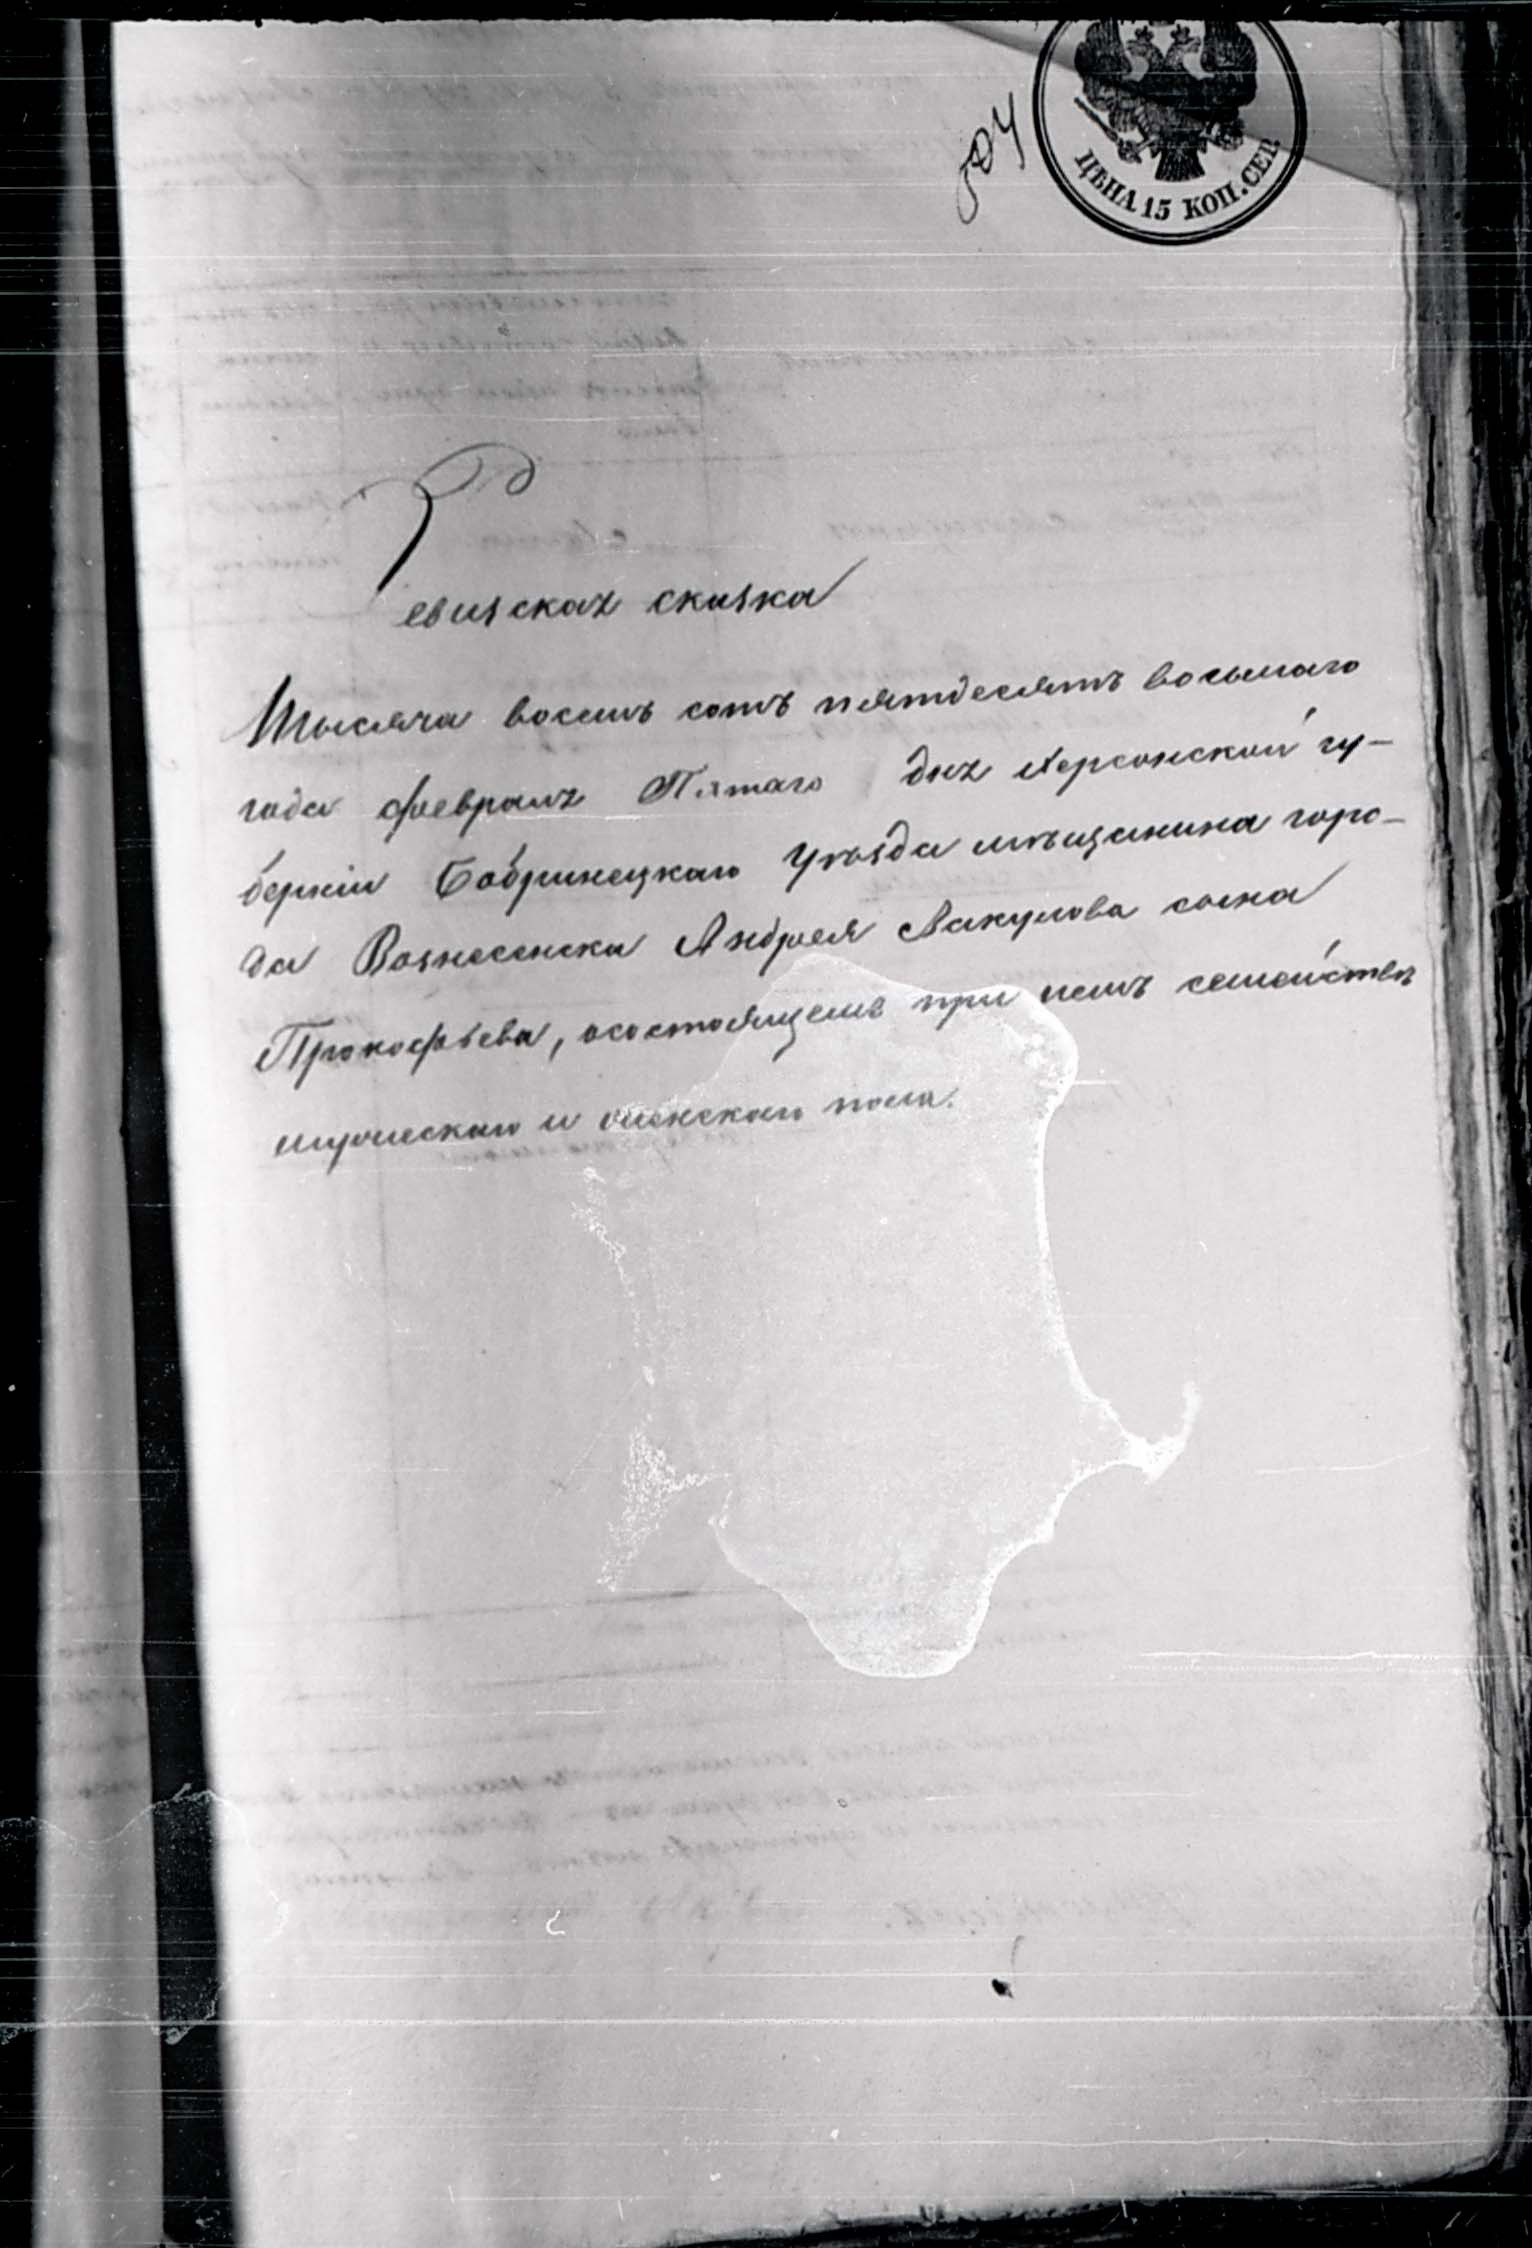 504
ЦѢНА 15 КОП. СЕР.
Ревизская сказка
Тысяча восемь сотъ пятдесятъ восьмаго
года февраля Пятаго дня Херсонской гу-
берніи Бобринецкаго Уѣзда мѣщанина горо-
да Вознесенска Андрея Акулова сына
Прокофьева, осостоящемъ при немъ семействѣ
мужескаго и женскаго пола.